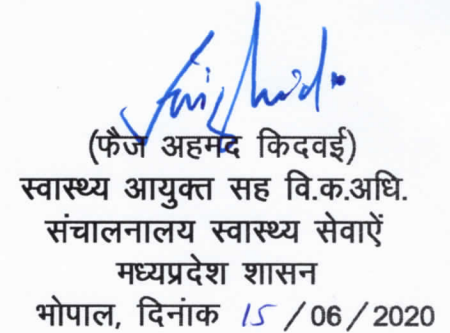 (फैज अहमद किदवई)
स्वास्थ्य आयुक्त सह वि.क.अधि.
संचालनालय स्वास्थ्य सेवाऐं
मध्यप्रदेश शासन
भोपाल, दिनांक 15 / 06 / 2020